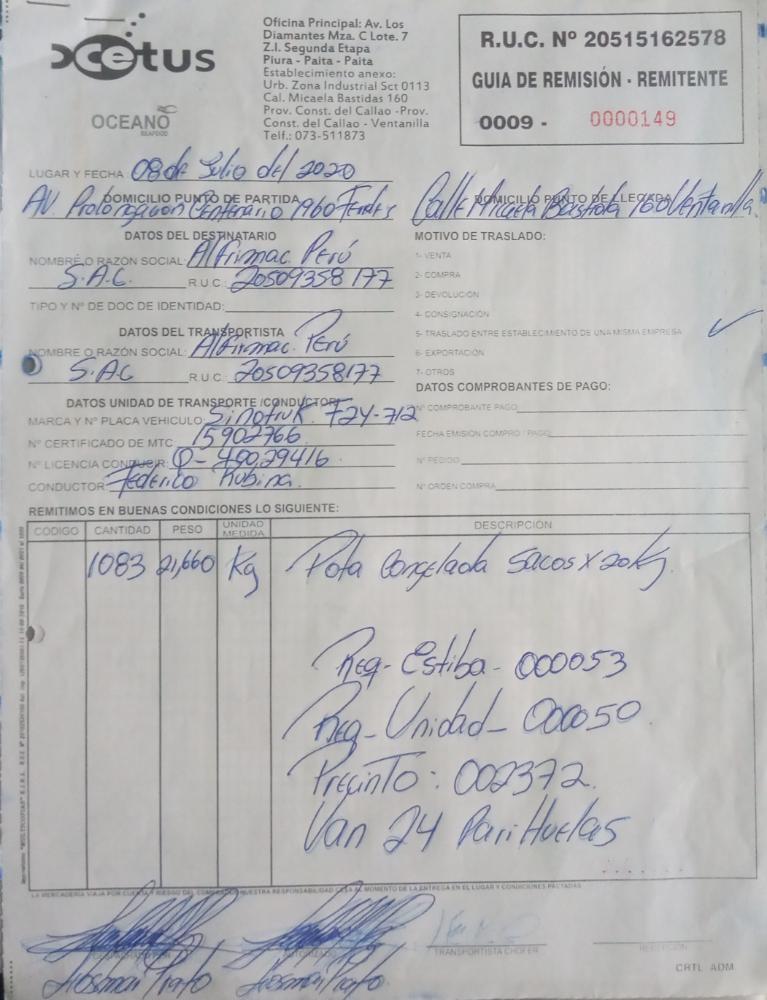 cetus
OCEANO
SEAFOOD
Oficina Principal: Av. Los
Diamantes Mza. C Lote. 7
Z.I. Segunda Etapa
Piura - Paita - Paita
Establecimiento anexo:
Urb. Zona Industrial Sct 0113
Cal. Micaela Bastidas 160
Prov. Const. del Callao -Prov.
Const. del Callao - Ventanilla
Telf.: 073-511873
R.U.C. Nº 20515162578
GUIA DE REMISIÓN - REMITENTE
0009 - 0000149
LUGAR Y FECHA 08 de Julio del 2020
DOMICILIO PUNTO DE PARTIDA
AV. Prolongacion Centenario 1960
DOMICILIO PUNTO DE LLEGADA
Calle Micaela Bastida 160 Ventanilla.
DATOS DEL DESTINATARIO
NOMBRE O RAZÓN SOCIAL: Alfrimac Perú
S.A.C. R.U.C: 20509358177
TIPO Y Nº DE DOC DE IDENTIDAD:
DATOS DEL TRANSPORTISTA
NOMBRE O RAZÓN SOCIAL: Alfrimac Perú
S.A.C R.U.C: 20509358177
DATOS UNIDAD DE TRANSPORTE /CONDUCTOR
MARCA Y Nº PLACA VEHICULO: Sinotruk F2Y-712
Nº CERTIFICADO DE MTC 15902766
Nº LICENCIA CONDUCIR: Q-40029416
CONDUCTOR: Federico Rubina.
MOTIVO DE TRASLADO:
1- VENTA
2- COMPRA
3- DEVOLUCIÓN
4- CONSIGNACIÓN
5- TRASLADO ENTRE ESTABLECIMIENTO DE UNA MISMA EMPRESA ✓
6- EXPORTACIÓN
7- OTROS
DATOS COMPROBANTES DE PAGO:
Nº COMPROBANTE PAGO
FECHA EMISIÓN COMPRO / PAGO
Nº PEDIDO
Nº ORDEN COMPRA
REMITIMOS EN BUENAS CONDICIONES LO SIGUIENTE:
CÓDIGO CANTIDAD PESO UNIDAD MEDIDA DESCRIPCIÓN
1083 21,660 Kg Pota Congelada Sacos x 20kg.
Reg- Estiba - 000053
Reg- Unidad- 000050
Precinto: 002372.
Van 24 PariHuelas
LA MERCADERÍA VIAJA POR CUENTA Y RIESGO DEL COMPRADOR NUESTRA RESPONSABILIDAD CESA AL MOMENTO DE LA ENTREGA EN EL LUGAR Y CONDICIONES PACTADAS
AUTORIZADO
TRANSPORTISTA CHOFER
RECEPCIÓN
CRTL ADM